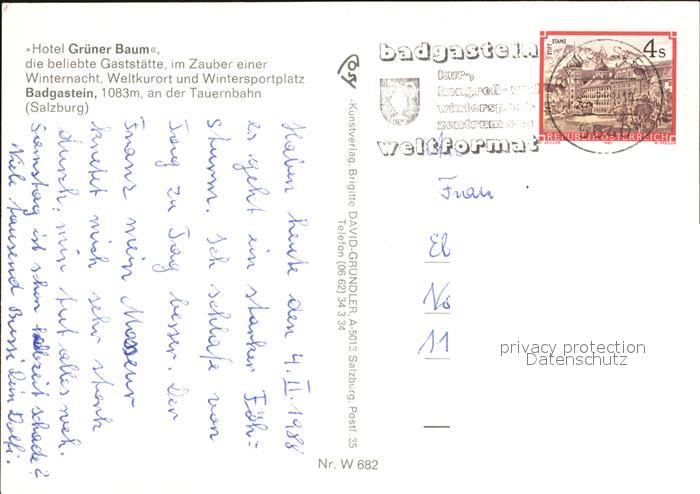 »Hotel Grüner Baum«,
die beliebte Gaststätte, im Zauber einer
Winternacht, Weltkurort und Wintersportplatz
Badgastein, 1083m, an der Tauernbahn
(Salzburg)
Haben heute den 4. II. 1988
es geht ein starker Föh-
Sturm. Ich schlafe von
Tag zu Tag besser. Der
Franz mein Masseur
knetet mich sehr stark
durch, mir tut alles weh.
Samstag ist schon schade?
Viel tausend Bussi Dein Dolfi.
Cosy
-Kunstverlag, Brigitte DAVID-GRÜNDLER, A-5013 Salzburg, Postf. 35
Telefon (06 62) 34 3 34
badgastein
kur-,
kongreß- und
wintersport-
zentrum von
weltformat
STIFT STAMS
4 S
REPUBLIK ÖSTERREICH
Frau
El
No
11
privacy protection
Datenschutz
Nr. W 682